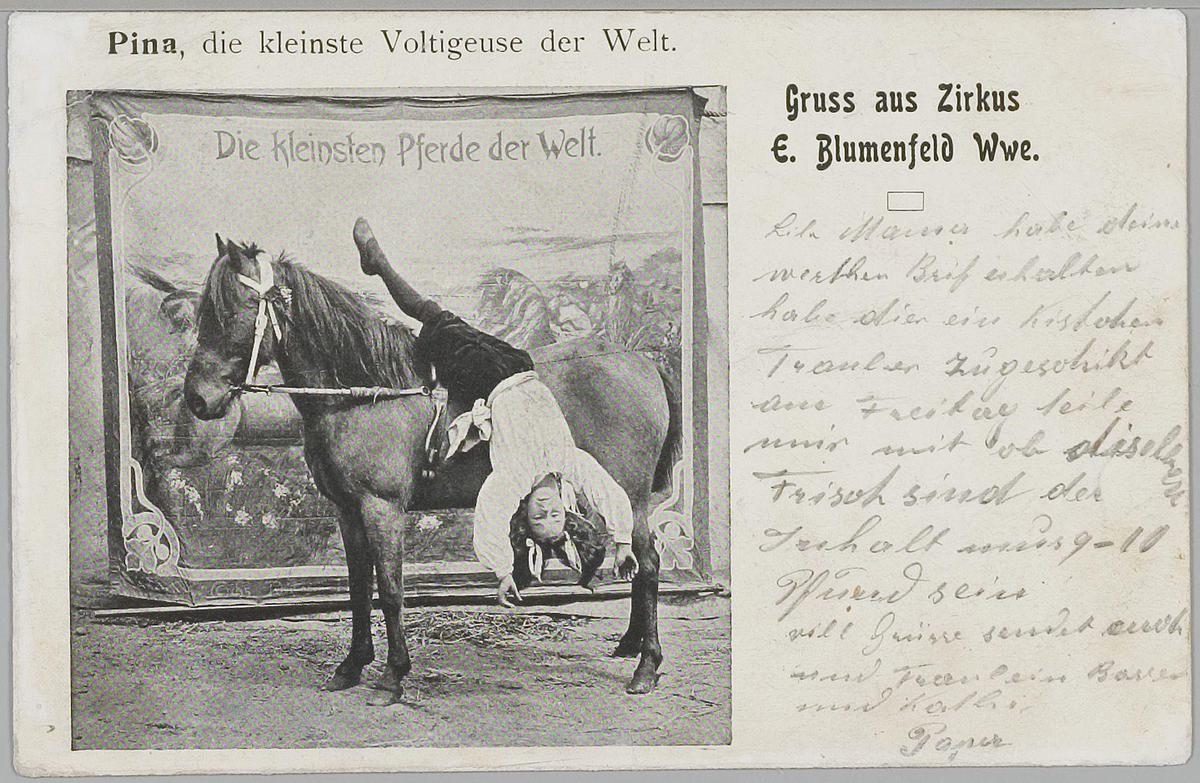 Pina, die kleinste Voltigeuse der Welt.
Die kleinsten Pferde der Welt.
Gruss aus Zirkus
E. Blumenfeld Wwe.
habe deine
werthen Brif erhalten
habe dier ein Kistchen
Trauben zugeschikt
am Freitag teile
mir mit ob diselben
Frisch sind der
Inhalt mus 9-10
Pfund sein
vill Grüsse sendet euch
und Fraulein
und